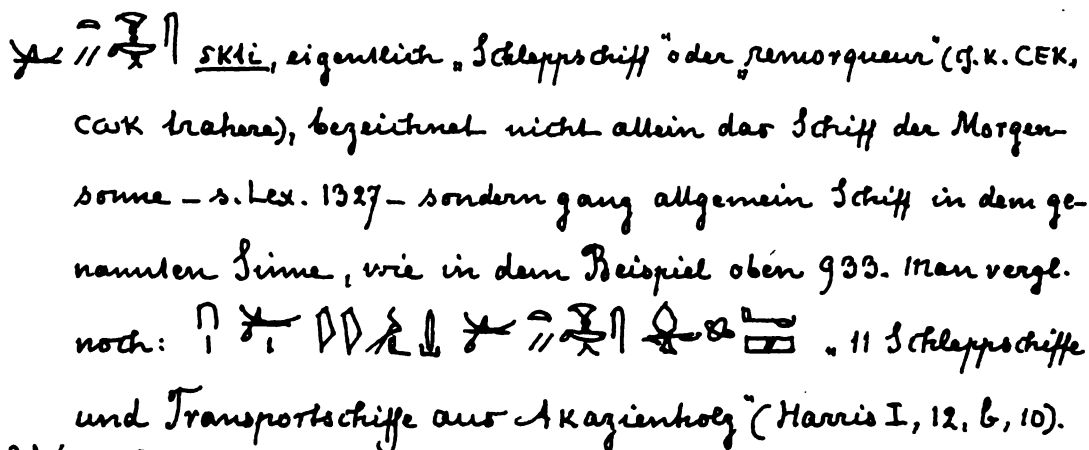 skti, eigentlich „Schleppschiff" oder „remorqueur" (J. K. CEK,
CωK trahere), bezeichnet nicht allein das Schiff der Morgen-
sonne – s. Lex. 1327 – sondern ganz allgemein Schiff in dem ge-
nannten Sinne, wie in dem Beispiel oben 933. Man vergl.
noch: „11 Schleppschiffe
und Transportschiffe aus Akazienholz" (Harris I, 12, b, 10).